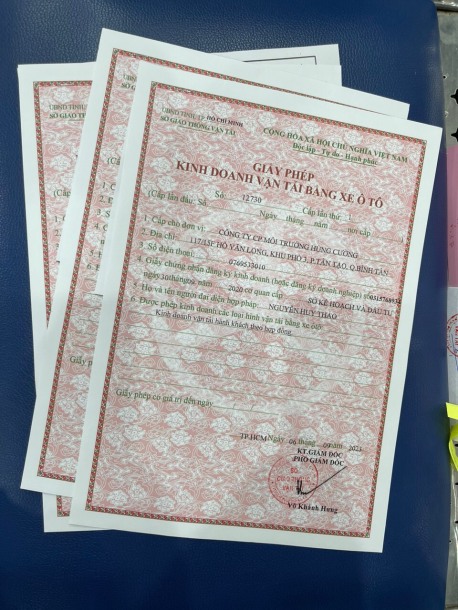 UBND TỈNH, TP HỒ CHÍ MINH
SỞ GIAO THÔNG VẬN TẢI
CỘNG HÒA XÃ HỘI CHỦ NGHĨA VIỆT NAM
Độc lập - Tự do - Hạnh phúc
GIẤY PHÉP
KINH DOANH VẬN TẢI BẰNG XE Ô TÔ
Số: 12730 Cấp lần thứ:
(Cấp lần đầu: Số Ngày tháng năm nơi cấp )
1. Cấp cho đơn vị: CÔNG TY CP MÔI TRƯỜNG HÙNG CƯỜNG
2. Địa chỉ: 117/15F HỒ VĂN LONG, KHU PHỐ 3, P.TÂN TẠO, Q.BÌNH TÂN
3. Số điện thoại: 0769533010
4. Giấy chứng nhận đăng ký kinh doanh (hoặc đăng ký doanh nghiệp) số
ngày 30 tháng 09 năm 2020 cơ quan cấp SỞ KẾ HOẠCH VÀ ĐẦU TƯ
5. Họ và tên người đại diện hợp pháp: NGUYỄN HUY THẢO
6. Được phép kinh doanh các loại hình vận tải bằng xe ôtô:
Kinh doanh vận tải hành khách theo hợp đồng.
Giấy phép có giá trị đến ngày
TP.HCM Ngày 06 tháng 09 năm 2023
KT.GIÁM ĐỐC
PHÓ GIÁM ĐỐC
Võ Khánh Hưng